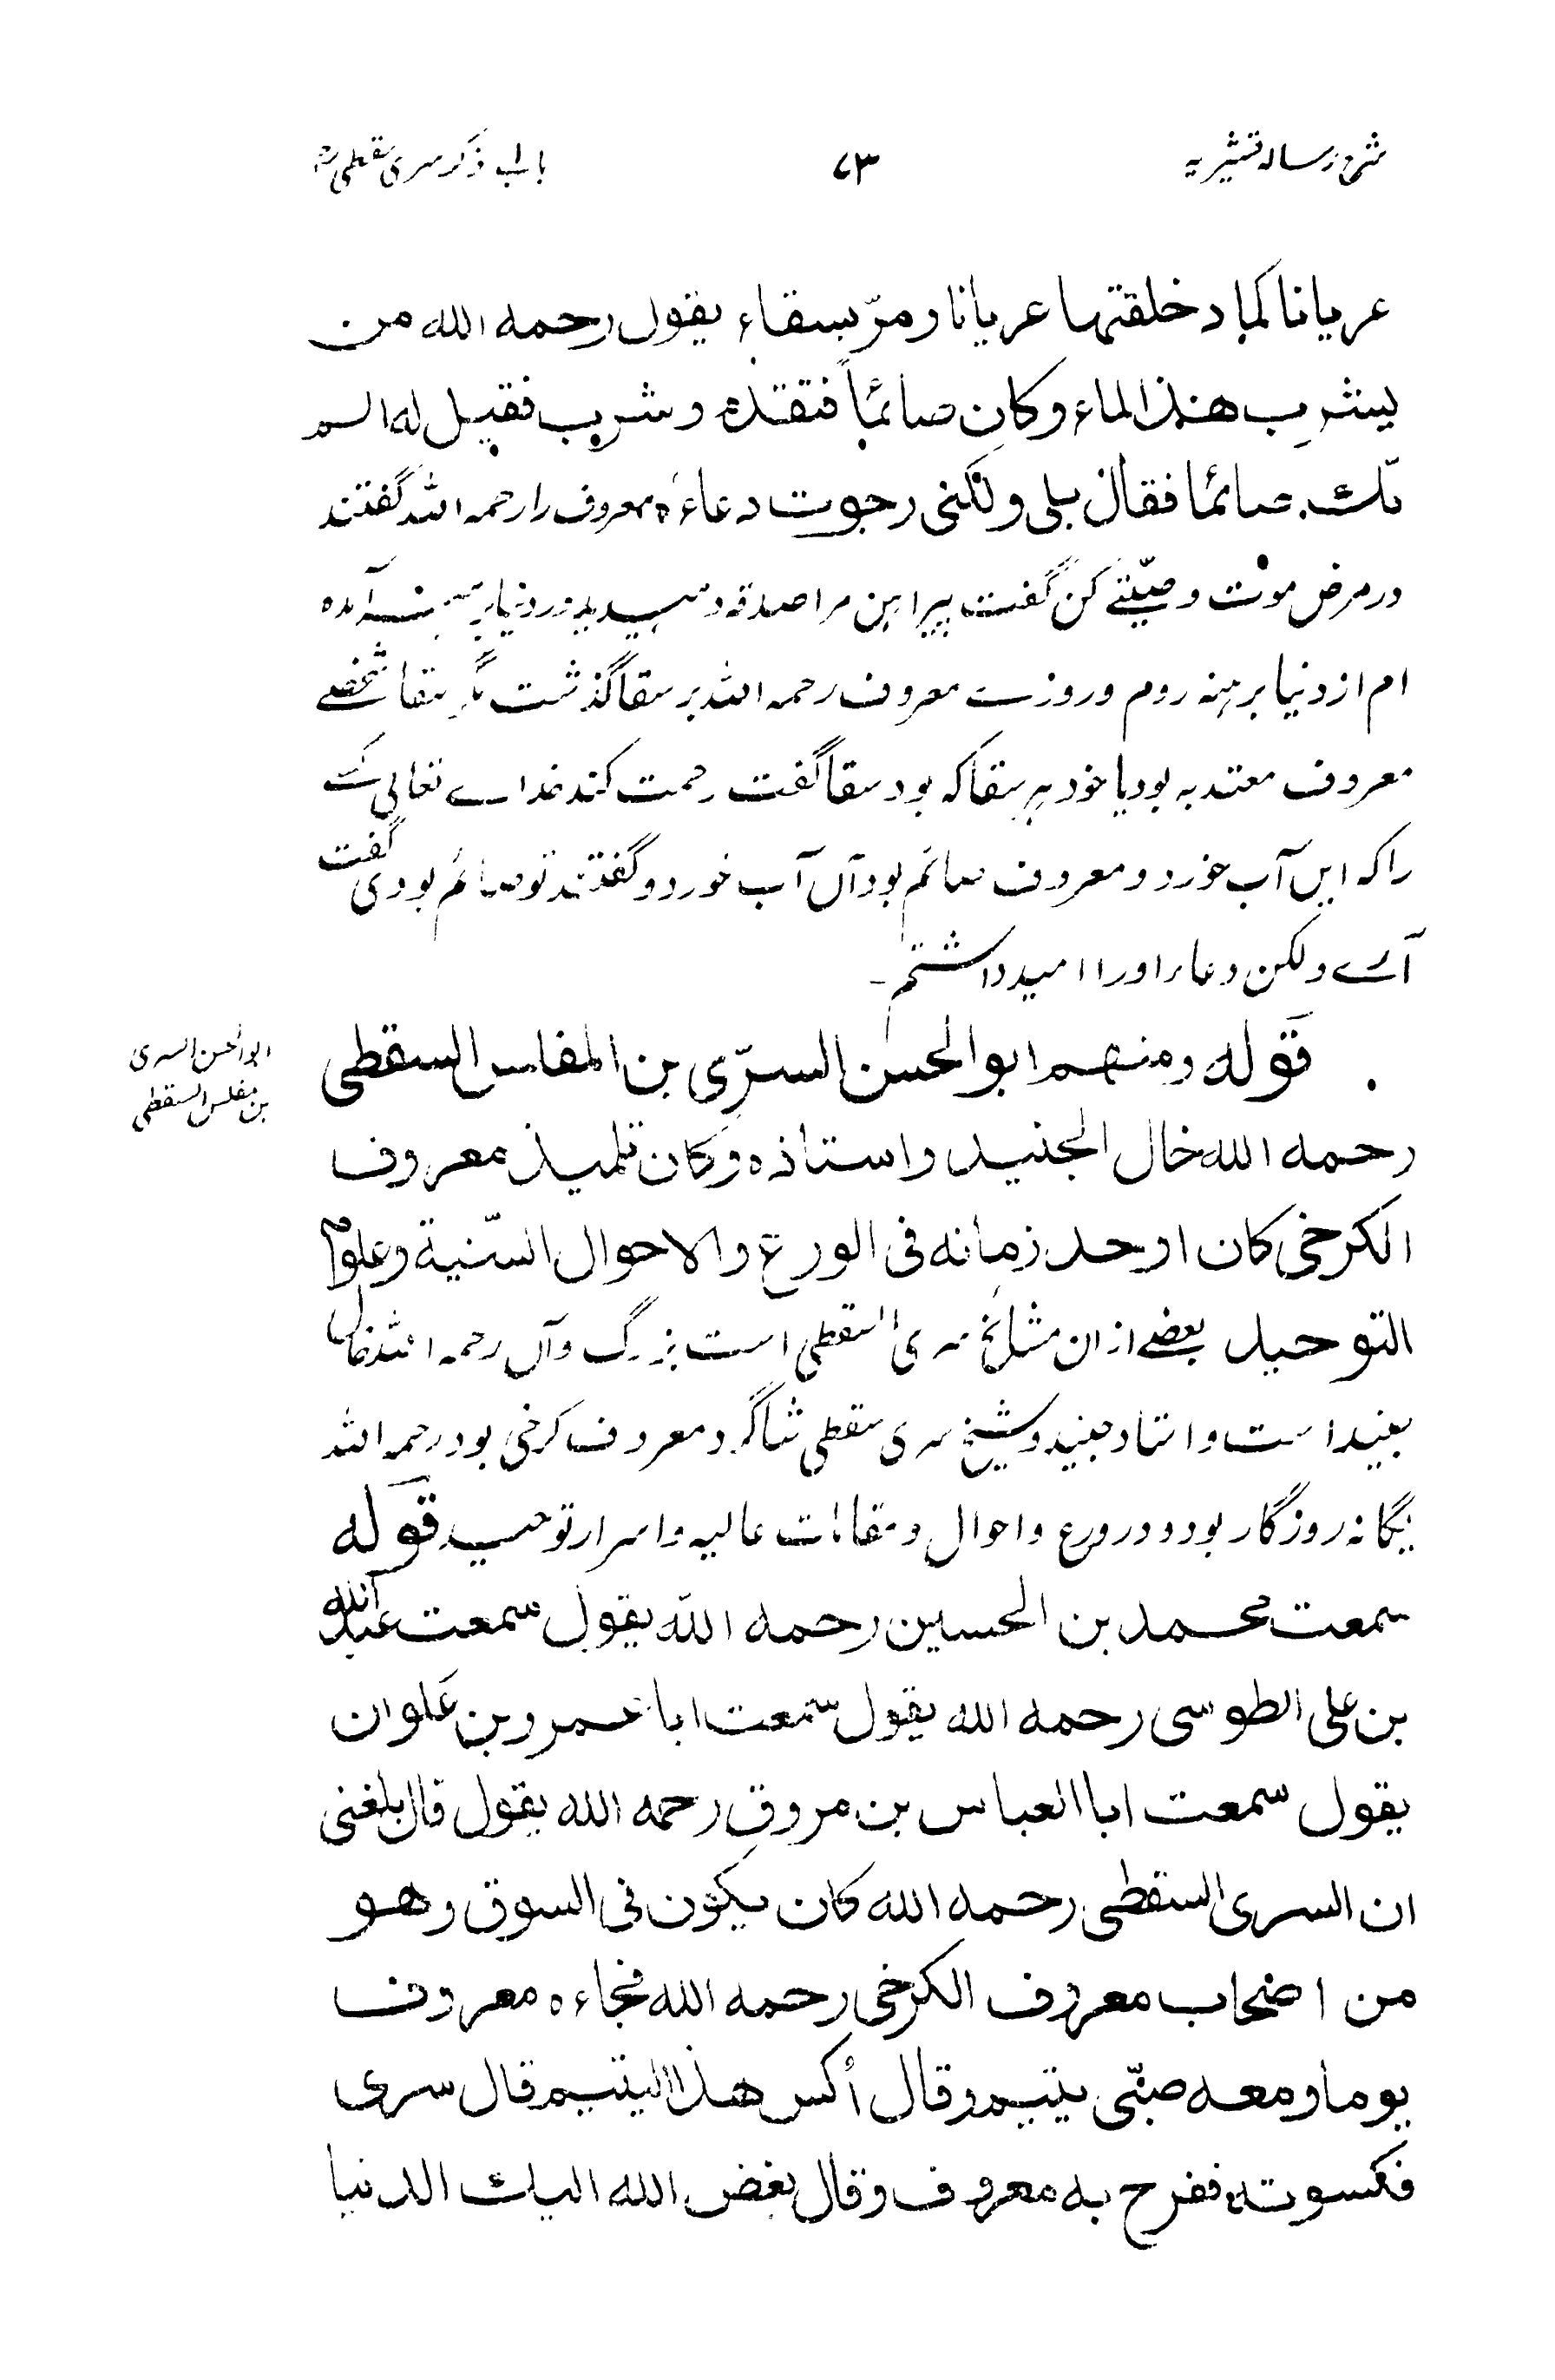 شرح رساله قشیریه ۷۳ باب ذکر سری سقطی رح
عریانا کما دخلقتها عریانا و مرّ بسقاء یقول رحمه الله من
یشرب هذا الماء و کان صائماً فتقدم و شرب فقیل له الم
تک صائما فقال بلی ولکنی رجوت دعاءه معروف را رحمه الله گفتند
در مرض موت وصیّتے کن گفت پیراهن مرا صدقه دهید در دنیا برهنه آمده
ام از دنیا برهنه روم و روزے معروف رحمه الله بر سقا گذشت مگر سقا شخصے
معروف معتد به بود یا خود هر سقا که بود سقا گفت رحمت کند خداے تعالی کسے
را که این آب خورد و معروف صائم بود آں آب خورد و گفتند تو صائم بودی گفت
آرے ولکن دعاء او را امید داشتم۔
قوله ومنهم ابو الحسن السرّی بن المغلس السقطی
ابوالحسن السری
بن مغلس السقطی
رحمه الله خال الجنید و استاذه و کان تلمیذ معروف
الکرخی کان اوحد زمانه فی الورع والاحوال السّنیة وعلوم
التوحید بعضے ازان مشائخ سری السقطی است بزرگ وآں رحمه الله خال
جنید است و استاد جنید و شیخ سری سقطی شاگرد معروف کرخی بود رحمه الله
یگانه روزگار بود در ورع و احوال و مقامات عالیه و اسرار توحید قوله
سمعت محمد بن الحسین رحمه الله یقول سمعت عبد الله
بن علی الطوسی رحمه الله یقول سمعت ابا عمرو بن علوان
یقول سمعت ابا العباس بن مروق رحمه الله یقول قال بلغنی
ان السری السقطی رحمه الله کان یکون فی السوق وهو
من اصحاب معروف الکرخی رحمه الله فجاءه معروف
یوما و معه صبّی یتیم وقال أکس هذا الیتیم قال سری
فکسوته ففرح به معروف وقال بغض الله الیک الدنیا